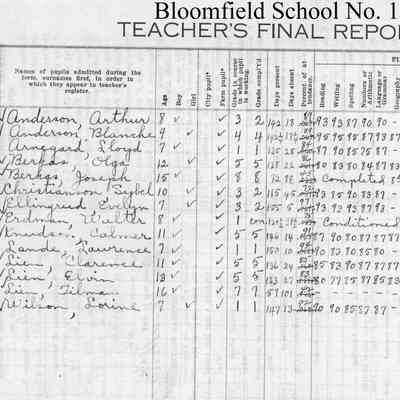 Bloomfield School No. 1
TEACHER'S FINAL REPO
Names of pupils admitted during the
term, surnames first, in order in
which they appear in teacher's
register.
Age
Boy
Girl
City pupil*
Farm pupil*
Grade in course
in which pupil
is working.
Grade compl't'd
Days present
Days absent
Percent of at-
tendance.
Reading
Writing
Spelling
Numbers or
Arithmetic
Language or
Grammar
Geography
Anderson, Arthur 8 ✓ ✓ 3 2 142 18 93 93 87 90 90 -
Anderson, Blanche 9 ✓ ✓ 4 4 95 95 95 87 93 87
Arnegard, Lloyd 7 ✓ ✓ 1 1 87 90 85 75 87 -
Berkas, Olga 12 ✓ ✓ 5 5 80 83 80 84 87 83
Berkas, Joseph 15 ✓ ✓ 8 8 Completed 8
Christianson, Sybel 10 ✓ ✓ 3 2 115 45 93 85 90 83 87 -
Ellingrud, Evelyn 7 ✓ ✓ 3 2 155 5 93 93 93 87 93 -
Erdman, Walter 8 ✓ ✓ 1 con Conditioned
Knudson, Calmer 11 ✓ ✓ 5 5 146 14 87 90 80 87 87
Lande, Lawrence 7 ✓ ✓ 1 1 150 10 90 83 80 85 80 -
Lien, Clarence 11 ✓ ✓ 5 5 136 24 85 83 90 87 87 87
Lien, Elvin 13 ✓ ✓ 5 5 80 77 85 87 85 83
Lien, Tilman 16 ✓ ✓ 7 7 59 101
Wilson, Lorine 7 ✓ ✓ 1 1 147 13 90 90 85 87 87 -